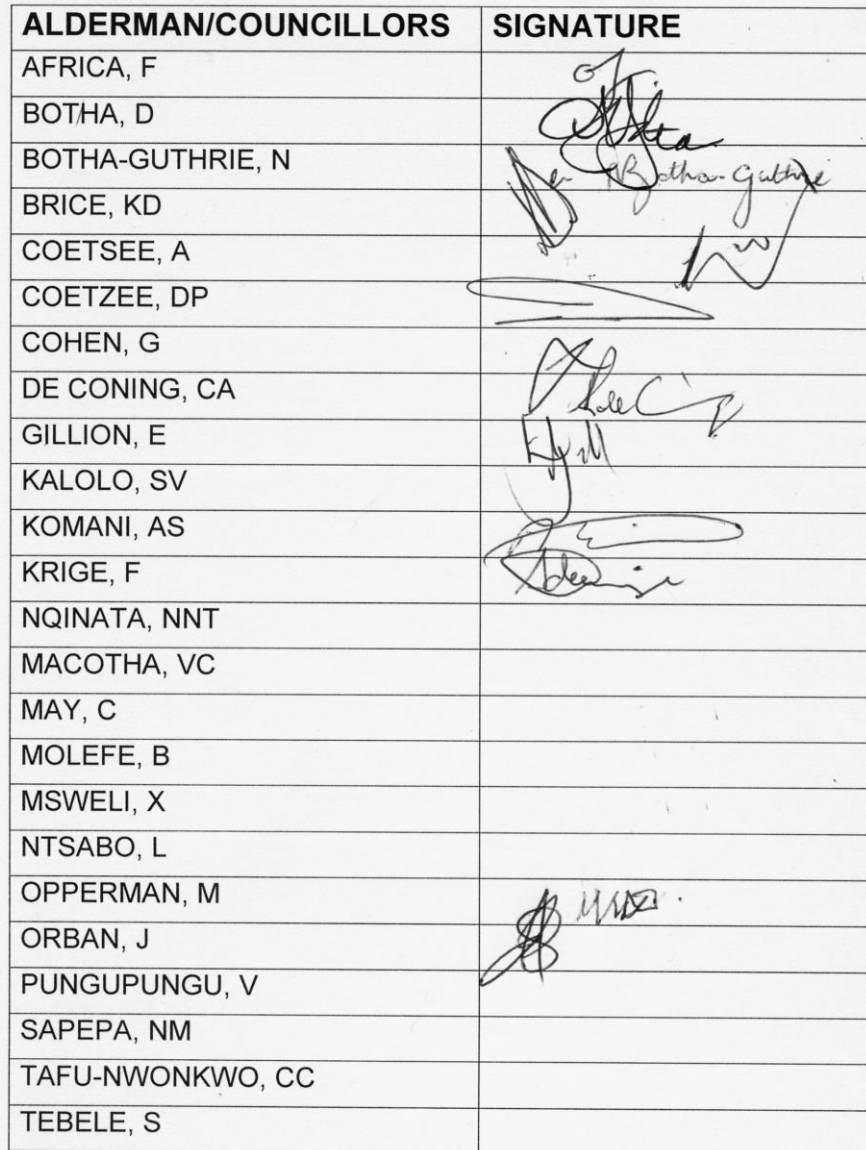 ALDERMAN/COUNCILLORS SIGNATURE
AFRICA, F
BOTHA, D
BOTHA-GUTHRIE, N Botha-Guthrie
BRICE, KD
COETSEE, A
COETZEE, DP
COHEN, G
DE CONING, CA
GILLION, E
KALOLO, SV
KOMANI, AS
KRIGE, F
NQINATA, NNT
MACOTHA, VC
MAY, C
MOLEFE, B
MSWELI, X
NTSABO, L
OPPERMAN, M
ORBAN, J
PUNGUPUNGU, V
SAPEPA, NM
TAFU-NWONKWO, CC
TEBELE, S